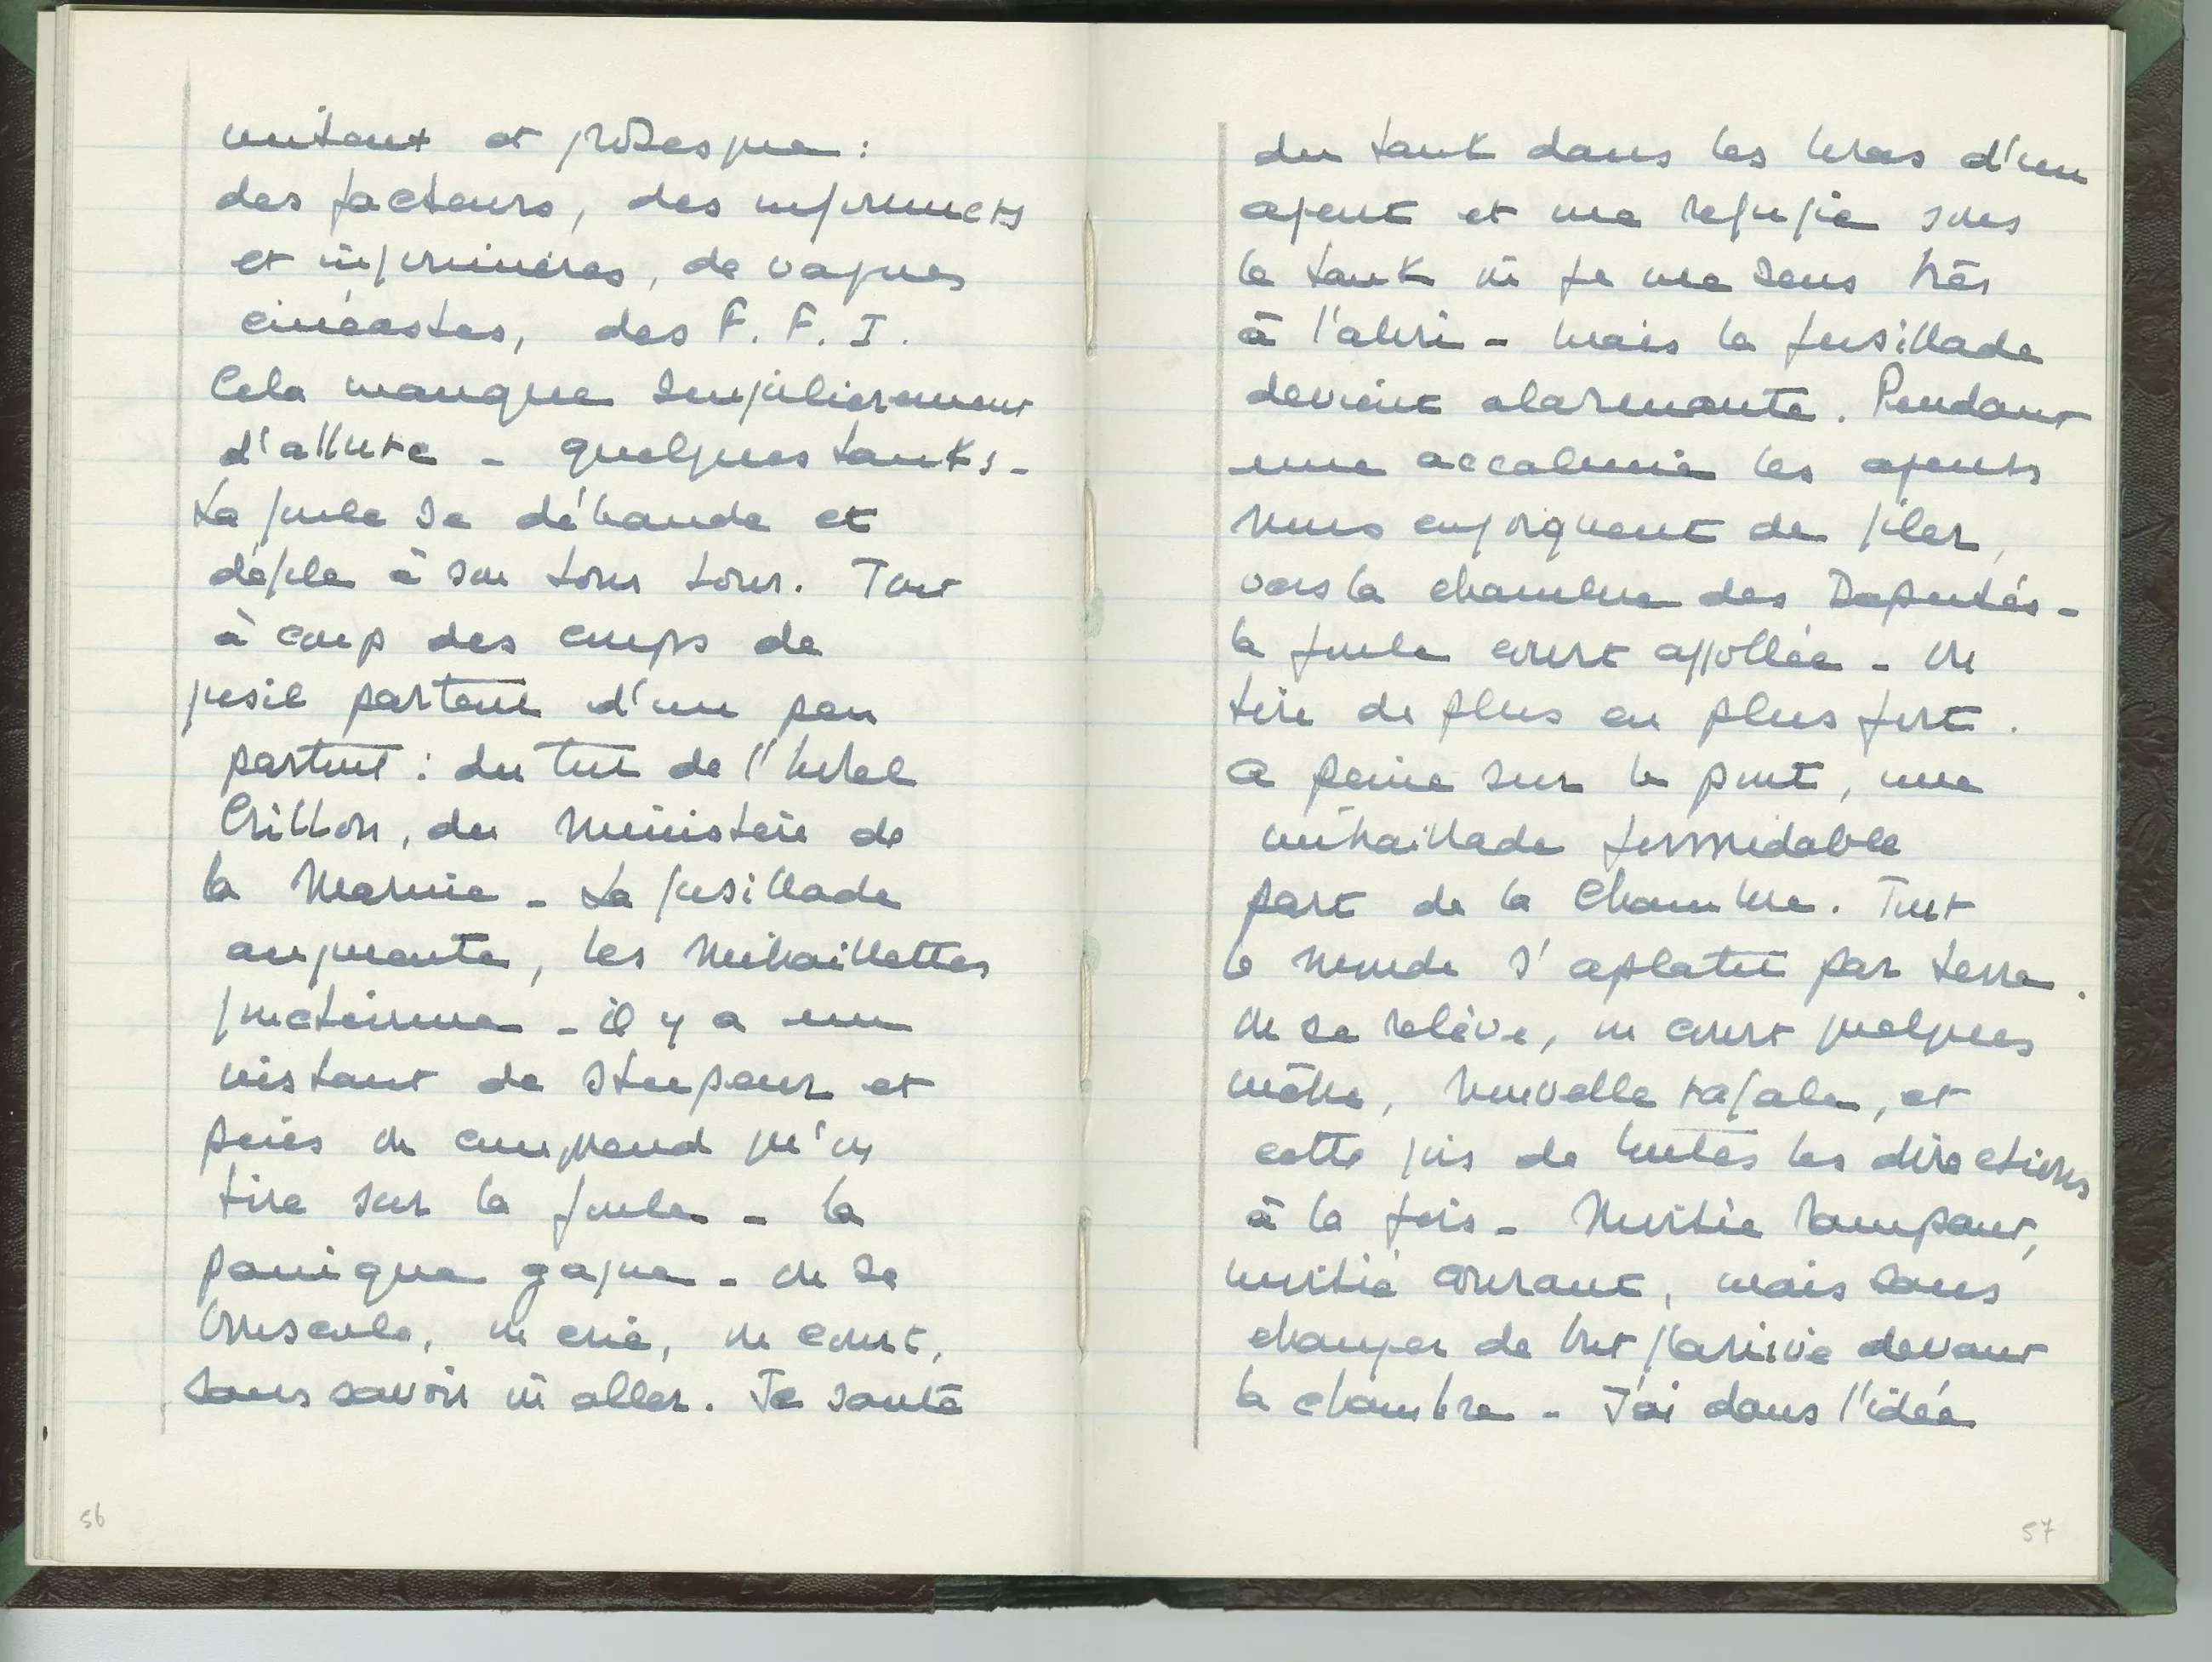 mitant et grotesque :
des facteurs, des infirmiers
et infirmières, de vagues
cinéastes, des F. F. I.
Cela manque singulièrement
d'allure - quelques tanks -
La foule se débande et
défile à son tour tour. Tout
à coup des coups de
fusil partent d'un peu
partout : du toit de l'hotel
Crillon, du Ministère de
la Marine - La fusillade
augmente, les mitraillettes
fonctionne - il y a un
instant de stupeur et
puis on comprend qu'on
tire sur la foule - la
panique gagne - on se
bouscule, on crie, on court,
sans savoir où aller. Je saute
56
du tank dans les bras d'un
agent et me refugie sous
le tank où je me sens très
à l'abri - mais la fusillade
devient alarmante. Pendant
une accalmie les agents
nous enjoignent de filer,
vers la chambre des Députés -
la foule court affollée - on
tire de plus en plus fort.
A peine sur le pont, une
mitraillade formidable
part de la Chambre. Tout
le monde s'aplatit par terre.
on se relève, on court quelques
mètres, nouvelle rafale, et
cette fois de toutes les directions
à la fois - Moitié rampant,
moitié courant, mais sans
changer de but j'arrive devant
la chambre - J'ai dans l'idée
57